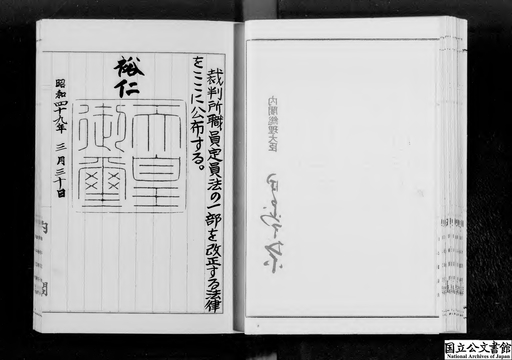 裁判所職員定員法の一部を改正する法律
をここに公布する。
裕仁
天皇
御璽
昭和四十九年 三月三十日
内閣
内閣総理大臣
国立公文書館
National Archives of Japan